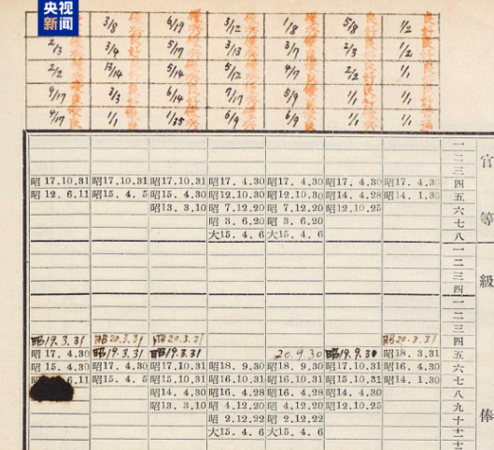 央视
新闻
3/8 6/19 3/12 1/8 5/8 1/2
2/3 3/4 5/17 3/13 3/7 2/3 1/2
2/2 13/14 5/14 5/12 4/7 2/2 1/1
9/17 3/3 6/14 7/17 5/9 1/1 1/1
4/17 1/1 1/35 6/9 6/9 1/1 1/1
一
二
三
昭17.10.31 昭17.10.31 昭17.10.31 昭17. 4.30 昭17. 4.30 昭17. 4.30 昭17. 4.30 四
昭12. 6.11 昭15. 4. 5 昭15. 4.30 昭12.10.30 昭12.10.30 昭14. 4.28 昭14. 1.30 五
昭13. 3.10 昭 7.12.20 昭 7.12.20 昭12.10.25 六
昭 3. 6.20 昭 3. 6.20 七
大15. 4. 6 大15. 4. 6 八
官等
一
二
三
四
級
一
二
三
昭19.3.31 昭20.3.31 昭20.3.31 昭20.3.31 四
昭17. 4.30 昭19.3.31 昭19.3.31 20.9.30 昭19.9.30 昭18. 3.31 五
昭15. 4.30 昭17. 4.30 昭17.10.31 昭18. 9.30 昭18. 9.30 昭17.10.31 昭16. 4.30 六
6.11 昭15. 4. 5 昭15.10.31 昭16.10.31 昭16.10.31 昭15.10.31 昭14. 1.30 七
昭14. 4.30 昭16. 4.28 昭16. 4.28 昭14. 4.30 八
昭13. 3.10 昭 4.12.20 昭 4.12.20 昭12.10.25 九
昭 2.12.22 昭 2.12.22 十
大15. 4. 6 大15. 4. 6 十一
俸